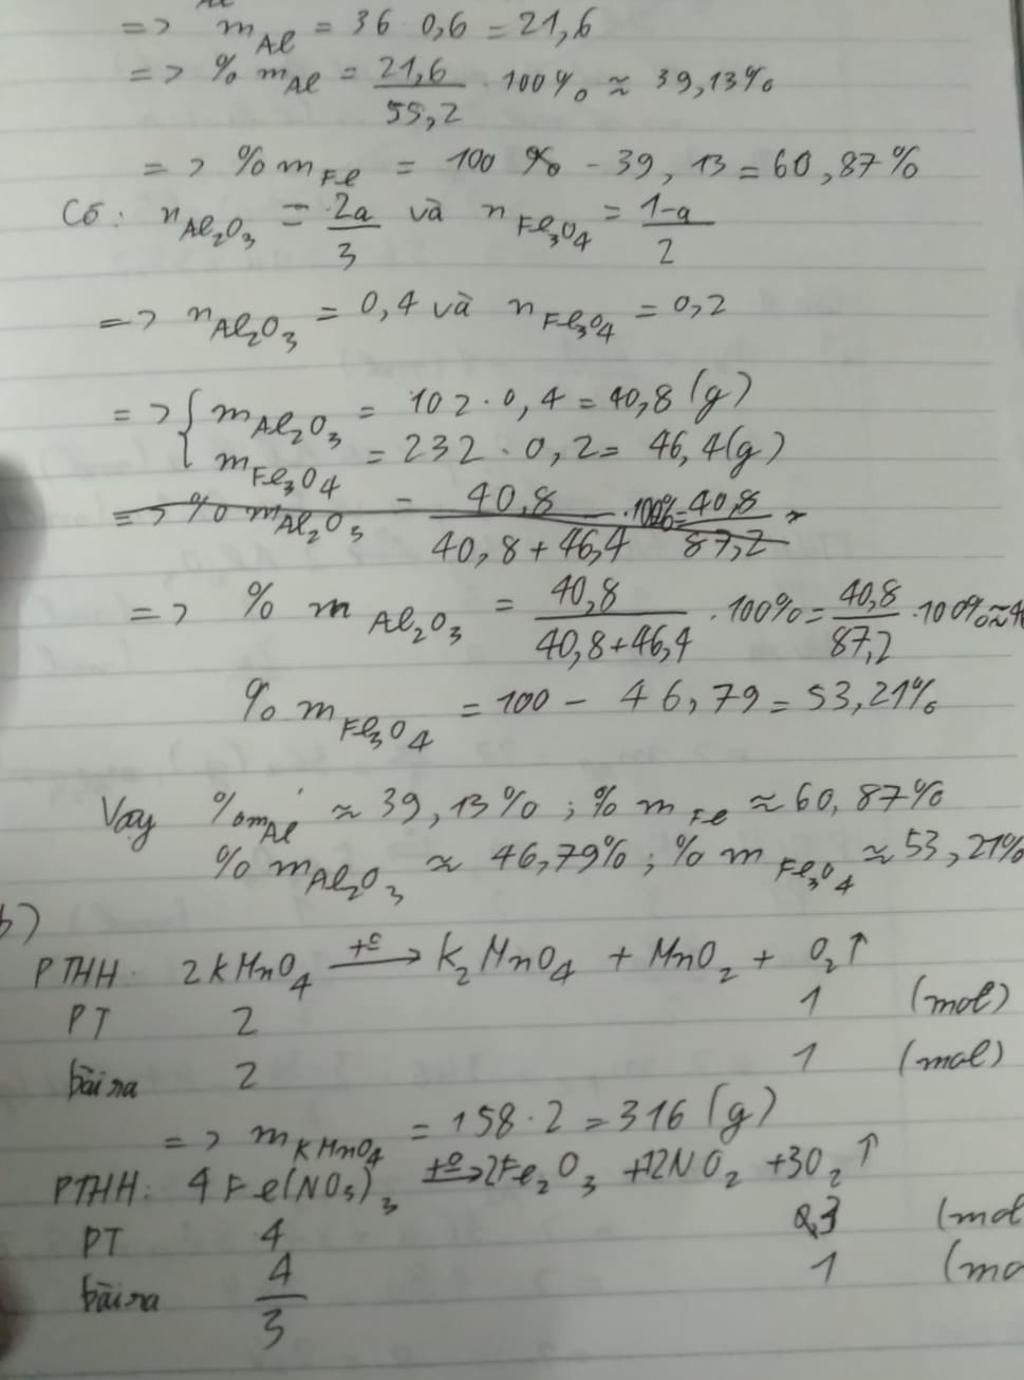 => m_Al = 36 · 0,6 = 21,6
=> % m_Al = 21,6/55,2 · 100% ≈ 39,13%
=> % m_Fe = 100 % - 39,13 = 60,87%
Có: n_Al₂O₃ = 2a/3 và n_Fe₃O₄ = 1-a/2
=> n_Al₂O₃ = 0,4 và n_Fe₃O₄ = 0,2
=> { m_Al₂O₃ = 102 · 0,4 = 40,8 (g)
m_Fe₃O₄ = 232 · 0,2 = 46,4 (g)
=> % m_Al₂O₃ = 40,8/40,8+46,4 · 100% = 40,8/87,2
=> % m_Al₂O₃ = 40,8/40,8+46,4 · 100% = 40,8/87,2 · 100% ≈ 4
% m_Fe₃O₄ = 100 - 46,79 = 53,21%
Vậy %m_Al ≈ 39,13% ; % m_Fe ≈ 60,87%
% m_Al₂O₃ ≈ 46,79% ; % m_Fe₃O₄ ≈ 53,21%
b)
PTHH: 2KMnO₄ —t°→ K₂MnO₄ + MnO₂ + O₂↑
PT 2 1 (mol)
bài ra 2 1 (mol)
=> m_KMnO₄ = 158 · 2 = 316 (g)
PTHH: 4Fe(NO₃)₃ —t°→ 2Fe₂O₃ + 12NO₂ + 3O₂↑
PT 4 3 (mol
bài ra 4/3 1 (mo